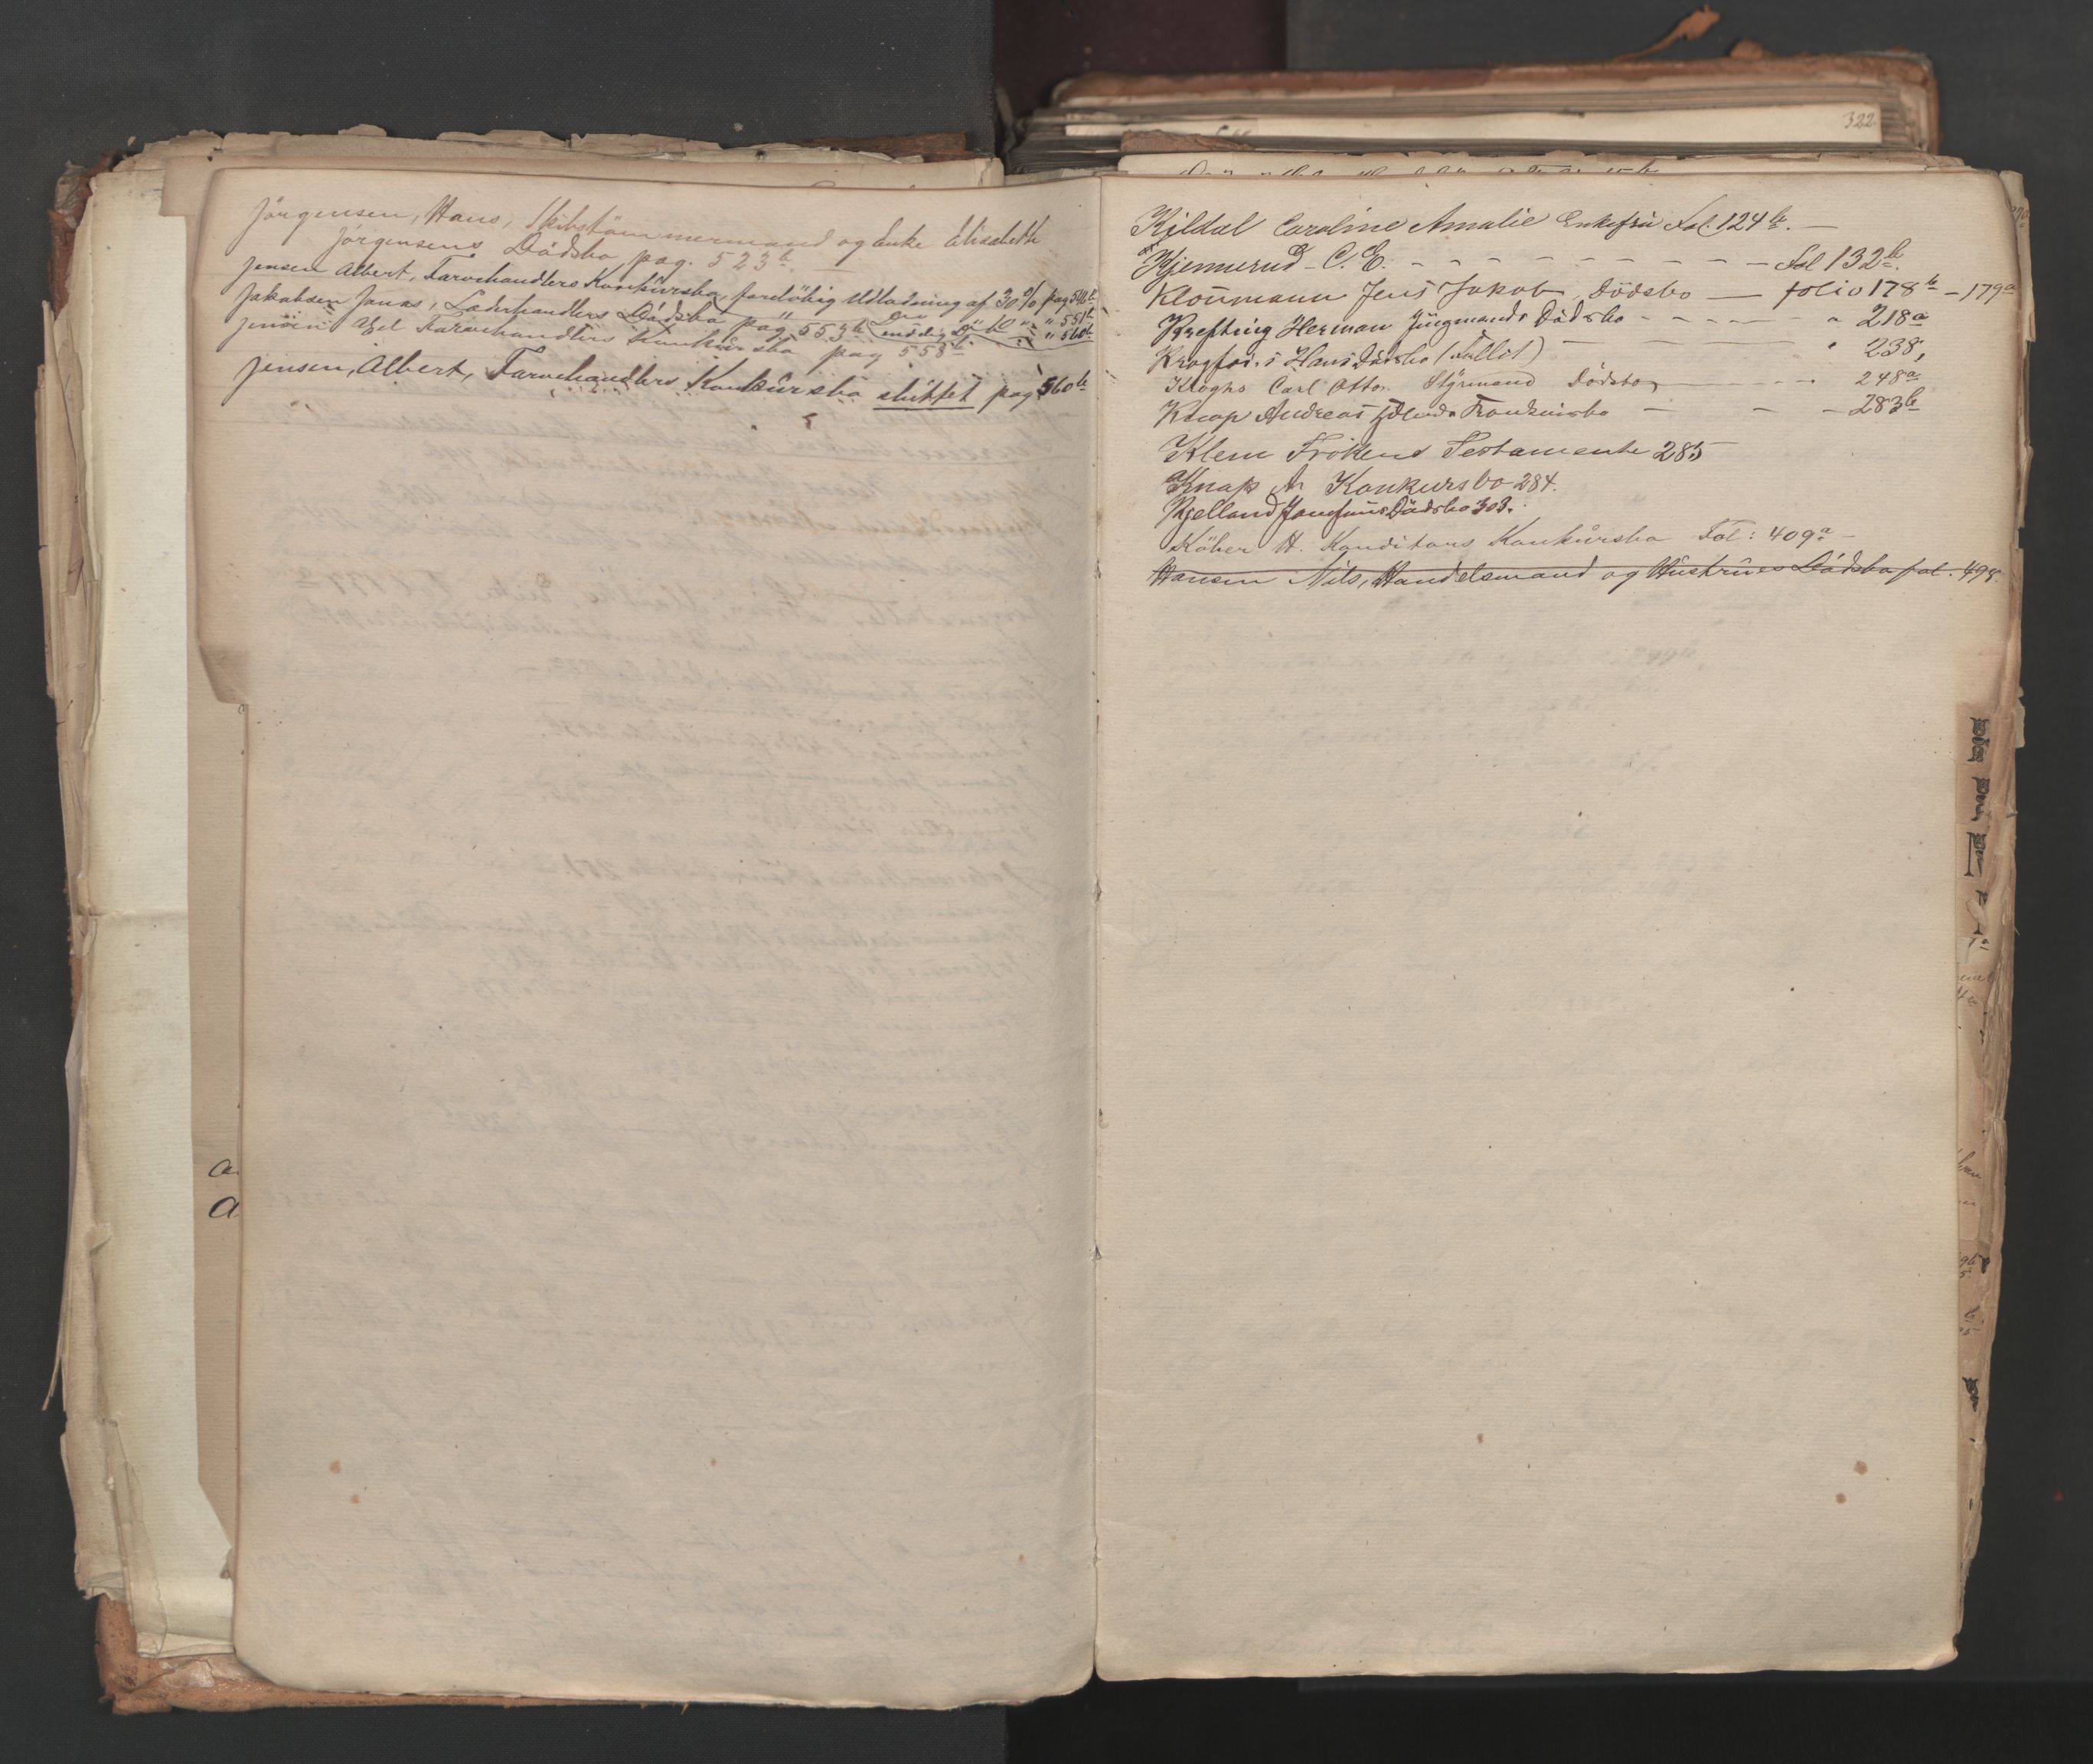 322
Jörgensen, Hans, Skibstömmermand og Enke Elisabeth
Jörgensens Dödsbo, pag. 523b. —
Jensen Albert, Farvehandlers Konkursbo, forelöbig Udlodning af 30% pag 546b
Do Do 10 " " 551b
Jakobsen Jonas, Læderhandlers Dödsbo pag 553b endelig " 560b
Jensen Farvehandlers Konkursbo pag 558b
Jensen, Albert, Farvehandlers Konkursbo sluttet pag 560b
Kildal Caroline Amalie Enkefru Fol. 124b. —
Kjennerud C. E. - - - - - - - - - - Fol 132b.
Kloumann Jens Jakob Dödsbo — folio 178b - 179a
Krefting Herman Jungmands Dödsbo - - - - - " 218a
Hans Dödsbo (Fallit) — " 238,
Kloghs Carl Otto. Styrmand Dödsbo — - - 248a
Knap Andreas — - - 283b
Klem Frökens Testamente 285
Knap A Konkursbo 284.
Kjelland Dödsbo 303.
Köber H. Konditors Konkursbo Fol: 409a —
Hansen Nils, Handelsmand og Hustrues Dödsbo fol. 498
a
a